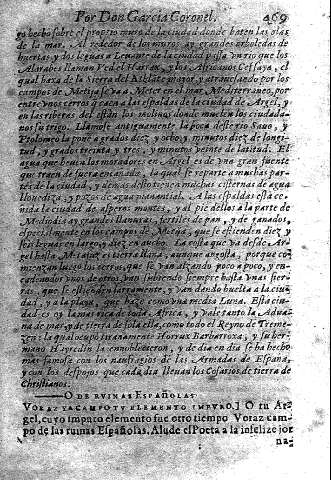 Por Don Garcia Coronel. 469
yo hecho sobre el propio muro de la ciudad donde baten las olas
de la mar. Al rededor de los muros ay grandes arboledas de
huertas, y dos leguas a Leuante de la ciudad passa vn rio que los
Alarabes llaman Ved el Harax, y los Africanos Cessaya, el
qual baxa de la Sierra del Athlante mayor, y atrauessando por los
campos de Metija se va a Meter en el mar Mediterraneo, por
entre vnos cerros q caen a las espaldas de la ciudad de Argel, y
en las riberas del estàn los molinos donde muelen los ciudada-
nos su trigo. Llamose antiguamente la boca deste rio Sauo, y
Ptolomeo la pone a grados diez y ocho, y minutos diez de longi-
tud, y grados treinta y tres, y minutos veinte de latitud. El
agua que beuen los moradores en Argel es de vna gran fuente
que traen de fuera encañada, la qual se reparte a muchas par-
tes de la ciudad, y demas desto tienen muchas cisternas de agua
llouediza, y pozos de agua manantial. A las espaldas està ce-
ñida la ciudad de asperos montes, y al pie dellos a la parte de
Mediodia ay grandes llanuras, fertiles de pan, y de ganados,
especialmente en los campos de Metija, que se estienden diez y
seis leguas en largo, y diez en ancho. La costa que va desde Ar-
gel hasta Metafuz es tierra llana, aunque angosta, porque co-
miençan luego los cerros, que se van alçando poco a poco, y en-
cadenando vnos con otros van subiendo siempre hasta vnas sier-
ras, que le estienden Leuante, y van dando buelta a la ciu-
dad, y a la playa, que haze como vna media Luna. Esta ciu-
dad es oy la mas rica de toda Africa, y vale tanto la Adua-
na de mar, y de tierra de sola ella, como todo el Reyno de Treme-
zen: la qual ocupò tiranamente Horrux Barbarroxa, y su her-
mano Hayredin la ennoblecieron, y de dia en dia se ha hecho
mas famosa con los naufragios de las Armadas de España,
y con los despojos que cada dia lleuan los Cosarios de tierra de
Christianos.
O DE RVINAS ESPAÑOLAS
VORAZ YA CAMPO TV ELEMENTO IMPVRO.] O tu Ar-
gel, cuyo impuro elemento fue otro tiempo Voraz cam-
po de las ruinas Españolas. Alude el Poeta a la infelize jor
na-